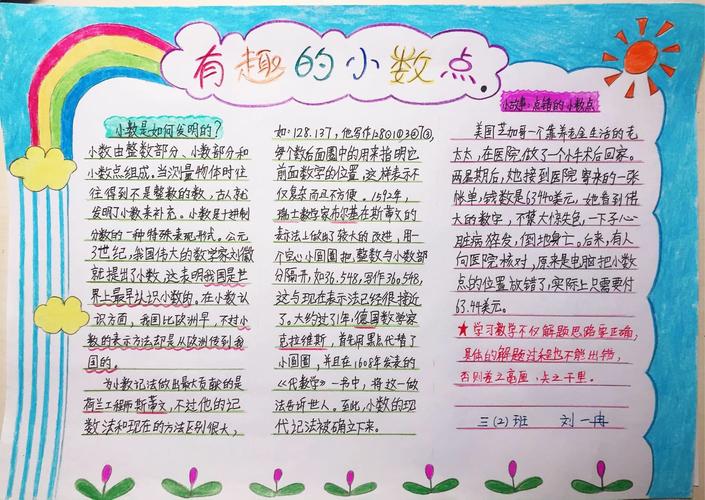 有趣的小数点.
小数是如何发明的?
小数由整数部分、小数部分和
小数点组成。当测量物体时往
往得到不是整数的数,古人就
发明了小数来补充。小数是十进制
分数的一种特殊表现形式。公元
3世纪,我国伟大的数学家刘徽
就提出了小数。这表明我国是世
界上最早认识小数的。在小数认
识方面,我国比欧洲早,不过小
数的表示方法却是从欧洲传到我
国的。
为小数记法做出最大贡献的是
荷兰工程师斯蒂文,不过他的记
数法和现在的方法区别很大,
如:128.137,他写作128⓪1①3②7③,
每个数后面圈中的用来指明它
前面数字的位置,这样表示不
仅复杂而且不方便。1592年,
瑞士数学家布尔基在斯蒂文的
表示法上做出了较大的改进,用一
个空心小圆圈把整数与小数部
分隔开,如36.548,写作36。548,
这与现在表示法已经很接近
了。大约过了1年,德国数学家
克拉维斯,首先用黑点代替了
小圆圈,并且在1608年发表的
《代数学》一书中,将这一做
法告诉世人。至此,小数的现
代记法被确立下来。
小故事:点错的小数点
美国芝加哥一个靠养老金生活的老
太太,在医院做了一个小手术后回家。
两星期后,她接到医院寄来的一张
帐单,钱数是6344美元。她看到偌
大的数字,不禁大惊失色,一下子心
脏病猝发,倒地身亡。后来,有人
向医院核对,原来是电脑把小数
点的位置放错了,实际上只需要付
63.44美元。
★学习数学不仅解题思路要正确,
具体的解题过程也不能出错,
否则差之毫厘,失之千里。
三(2)班 刘一冉